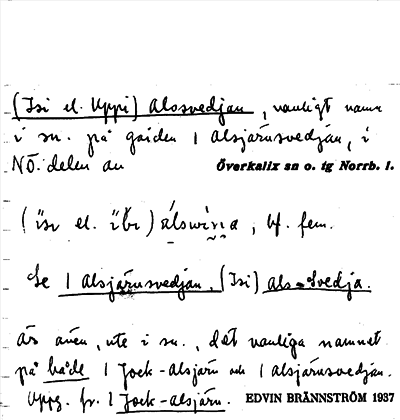 (Isi el. Uppi) Alsosvedjan, vanligt namn
i sn. på gården 1 Alsjärnsvedján, i
NÖ. delen av Överkalix sn o. tg Norrb. l.
(ɩ̈sɩ el. ɩ̈bɩ) álswina, bf. fem.
Se 1 Alsjärnsvedján, (Isi) Als-Svedja.
Är även, ute i sn., det vanliga namnet
på både 1 Jock-Alsjärn och 1 Alsjärnsvedján.
Uppg. fr. 1 Jock-alsjärn. EDVIN BRÄNNSTRÖM 1937